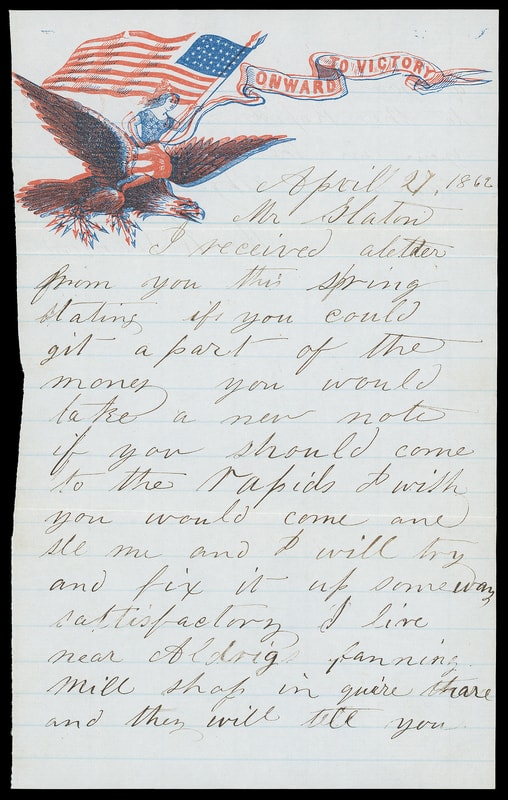 ONWARD TO VICTORY
April 27, 1862
Mr Slaton
I received a letter
from you this spring
stating if you could
git a part of the
money you would
take a new note
if you should come
to the rapids I wish
you would come and
see me and I will try
and fix it up some way
sattisfactory I live
near Aldrigs fanning
Mill shop in quire thare
and they will tell you